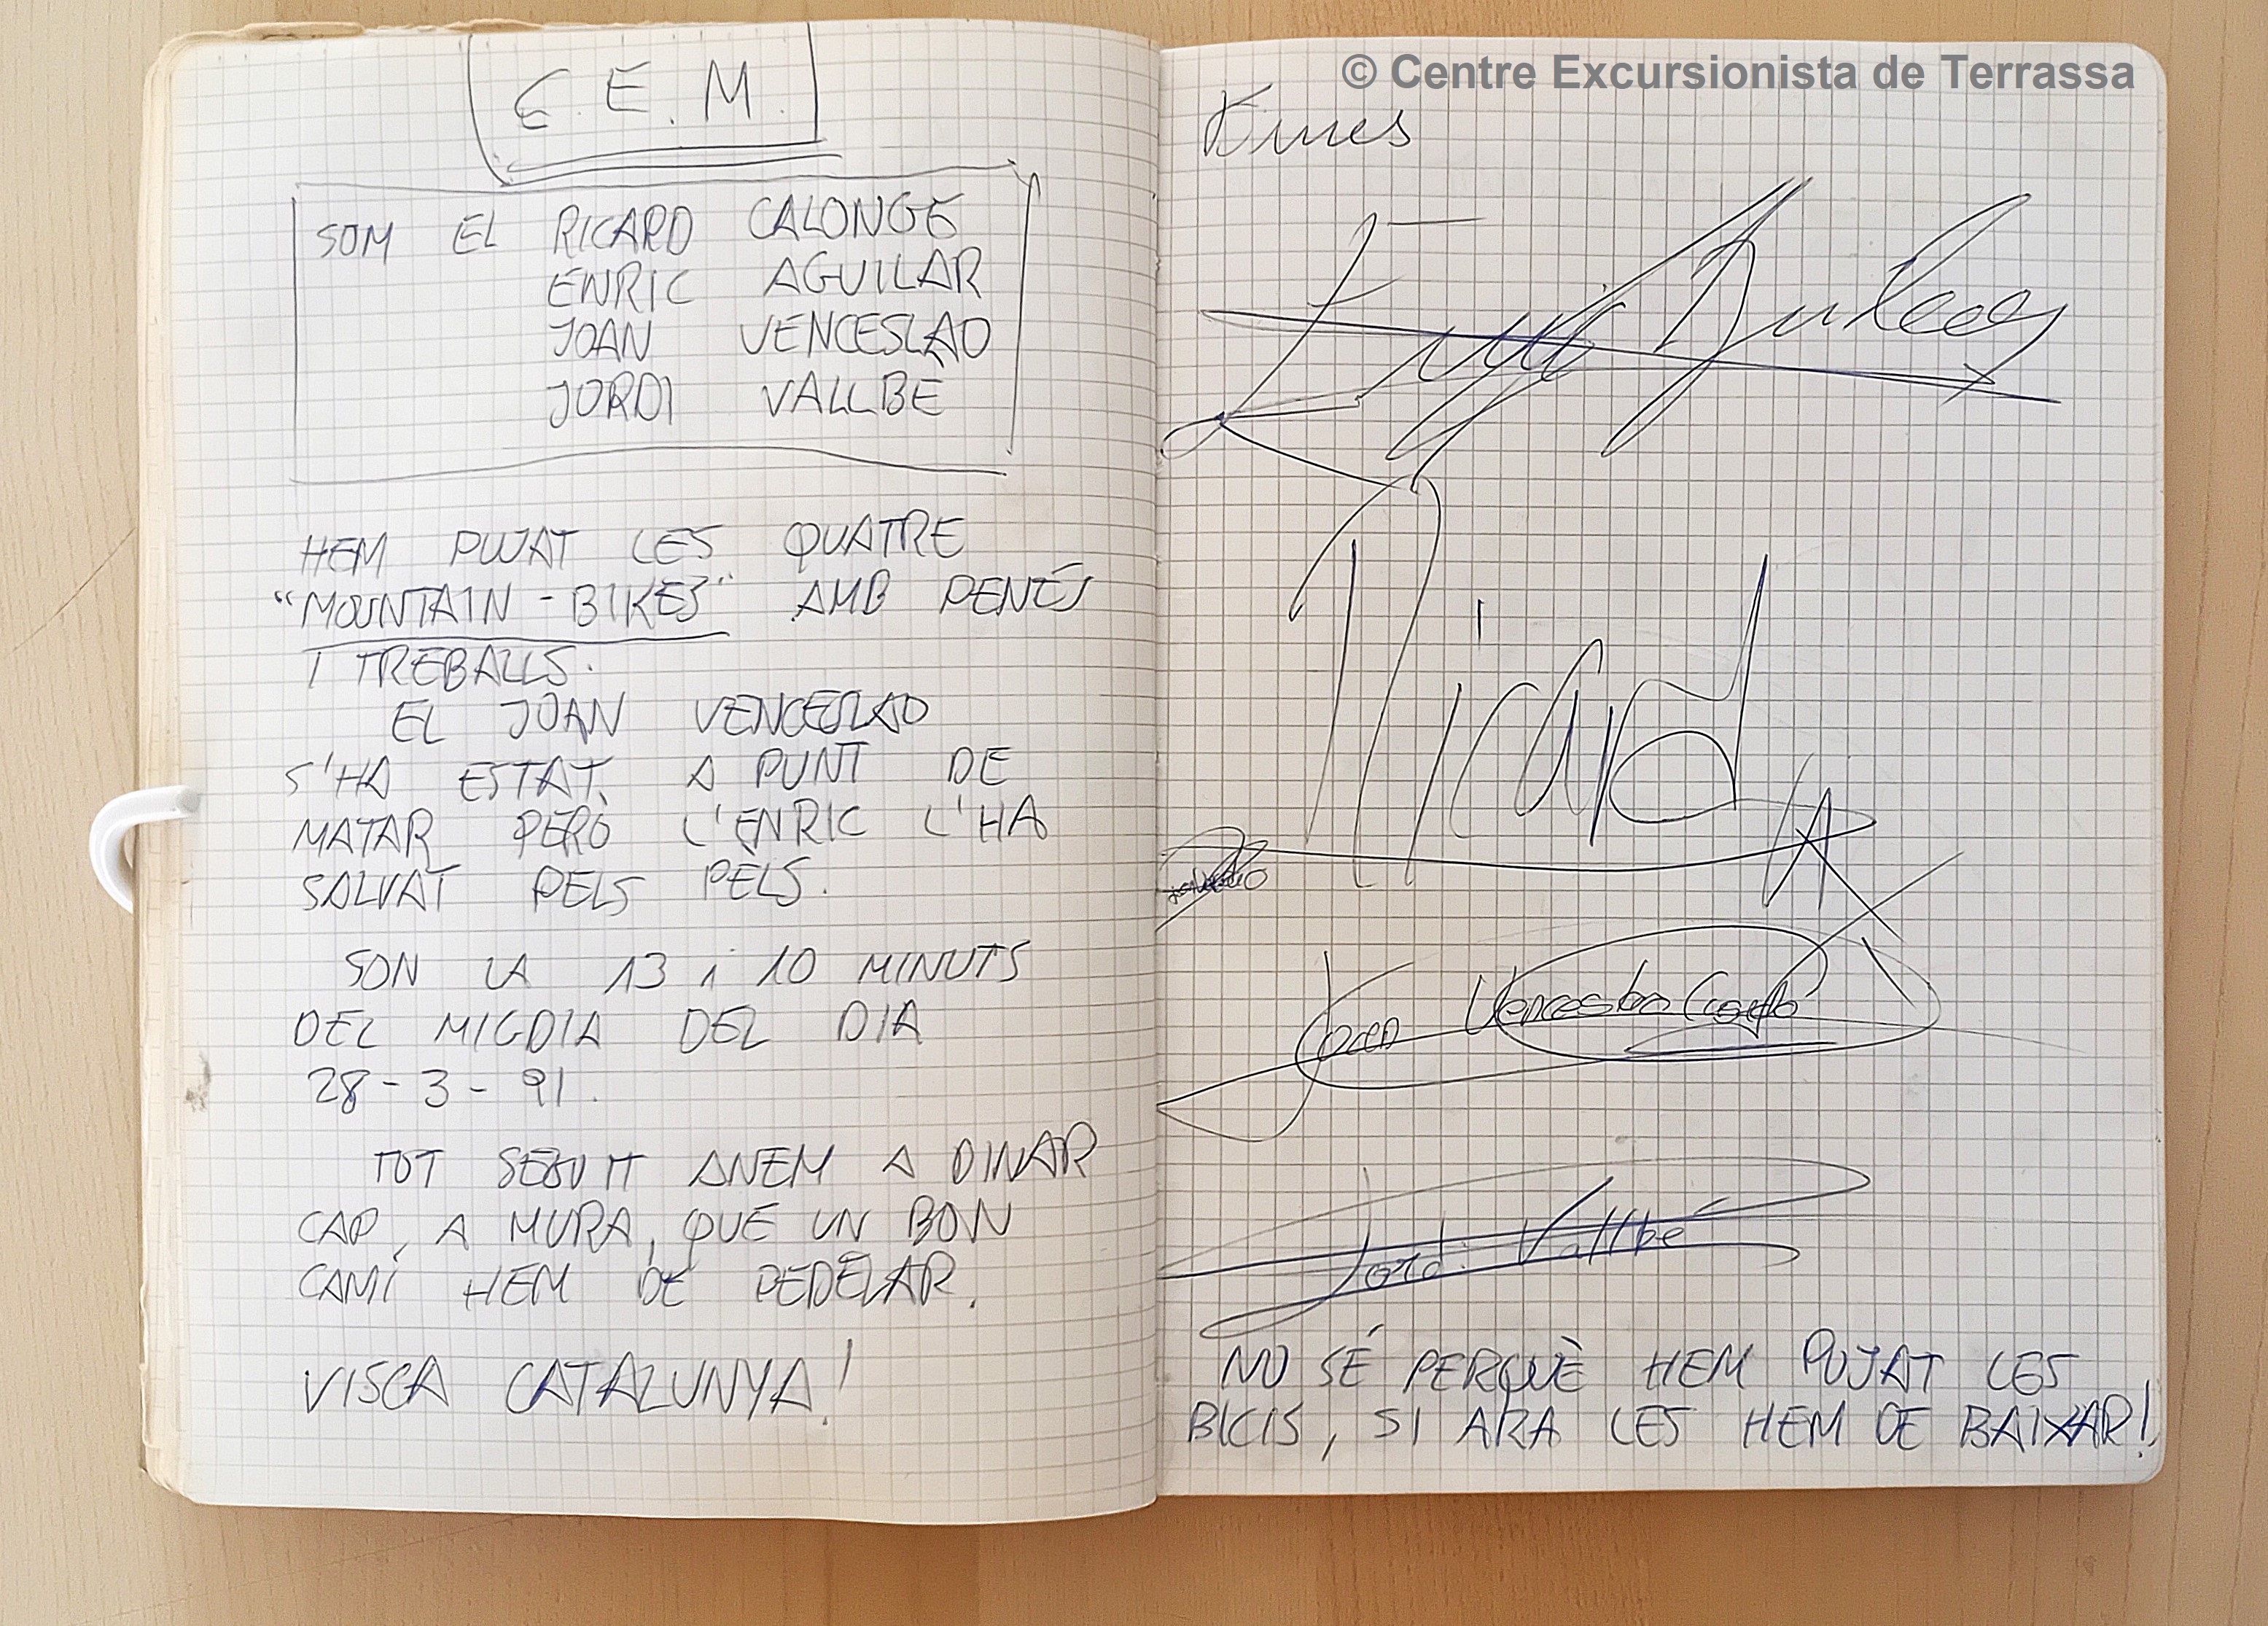 C.E.M.
SOM EL RICARD CALONGE
ENRIC AGUILAR
JOAN VENCESLAO
JORDI VALLBÉ
HEM PUJAT LES QUATRE
"MOUNTAIN-BIKES" AMB PENES
I TREBALLS.
EL JOAN VENCESLAO
S'HA ESTAT A PUNT DE
MATAR PERÒ L'ENRIC L'HA
SALVAT PELS PÈLS.
SON LA 13 i 10 MINUTS
DEL MIGDIA DEL DIA
28-3-91.
TOT SEGUIT ANEM A DINAR
CAP A MURA, QUE UN BON
CAMÍ HEM DE PEDELAR.
VISCA CATALUNYA!
© Centre Excursionista de Terrassa
Ricard
Joan Venceslao
Jordi Vallbé
NO SÉ PERQUÈ HEM PUJAT LES
BICIS, SI ARA LES HEM DE BAIXAR!